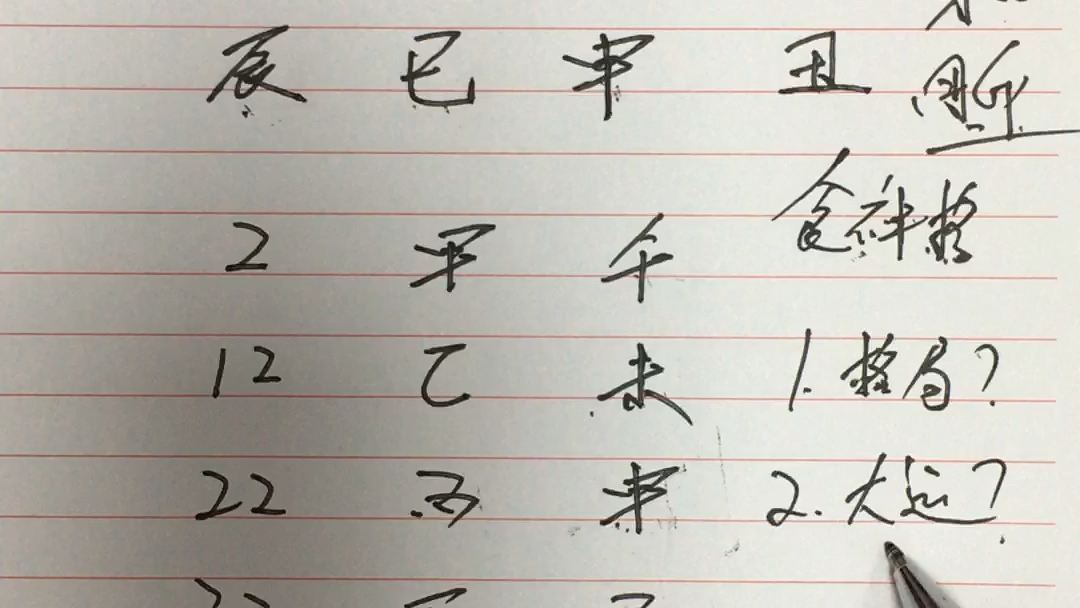 辰 巳 申 丑
2 甲 午 食神格
12 乙 未 1.格局?
22 丙 申 2.大运?